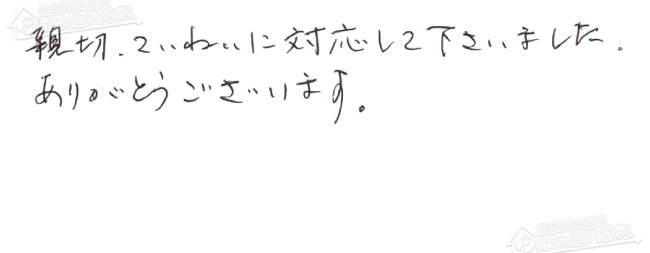 親切、ていねいに対応して下さいました。
ありがとうございます。